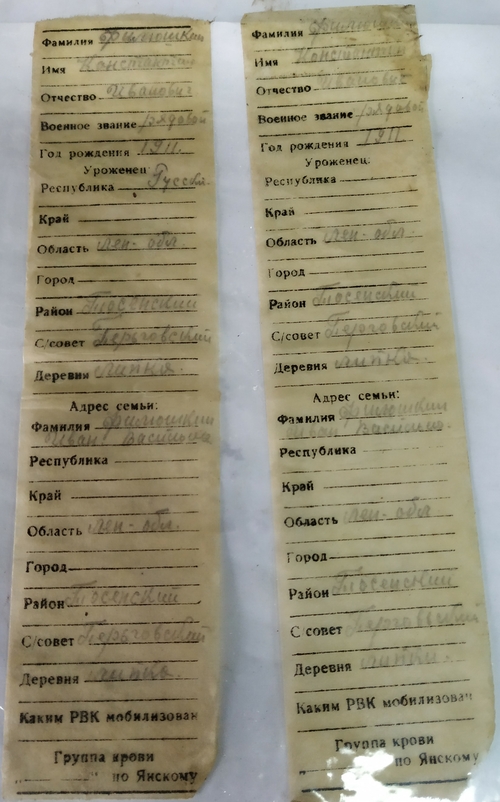 Фамилия Филюшкин
Имя Константин
Отчество Иванович
Военное звание рядовой
Год рождения 1911.
Уроженец:
Республика Русск.
Край
Область Лен-обл.
Город
Район Тосенский
С/совет
Деревня Липка.
Адрес семьи:
Фамилия Филюшкин
Иван
Республика
Край
Область Лен-обл.
Город
Район Тосенский
С/совет
Деревня Липка.
Каким РВК мобилизован
Группа крови
„ " по Янскому
Фамилия Филюшкин
Имя Константин
Отчество Иванович
Военное звание рядовой
Год рождения 1911
Уроженец:
Республика
Край
Область Лен-обл.
Город
Район Тосенский
С/совет
Деревня Липка.
Адрес семьи:
Фамилия Филюшкин
Иван
Республика
Край
Область Лен-обл
Город
Район Тосенский
С/совет
Деревня Липка.
Каким РВК мобилизован
Группа крови
по Янскому